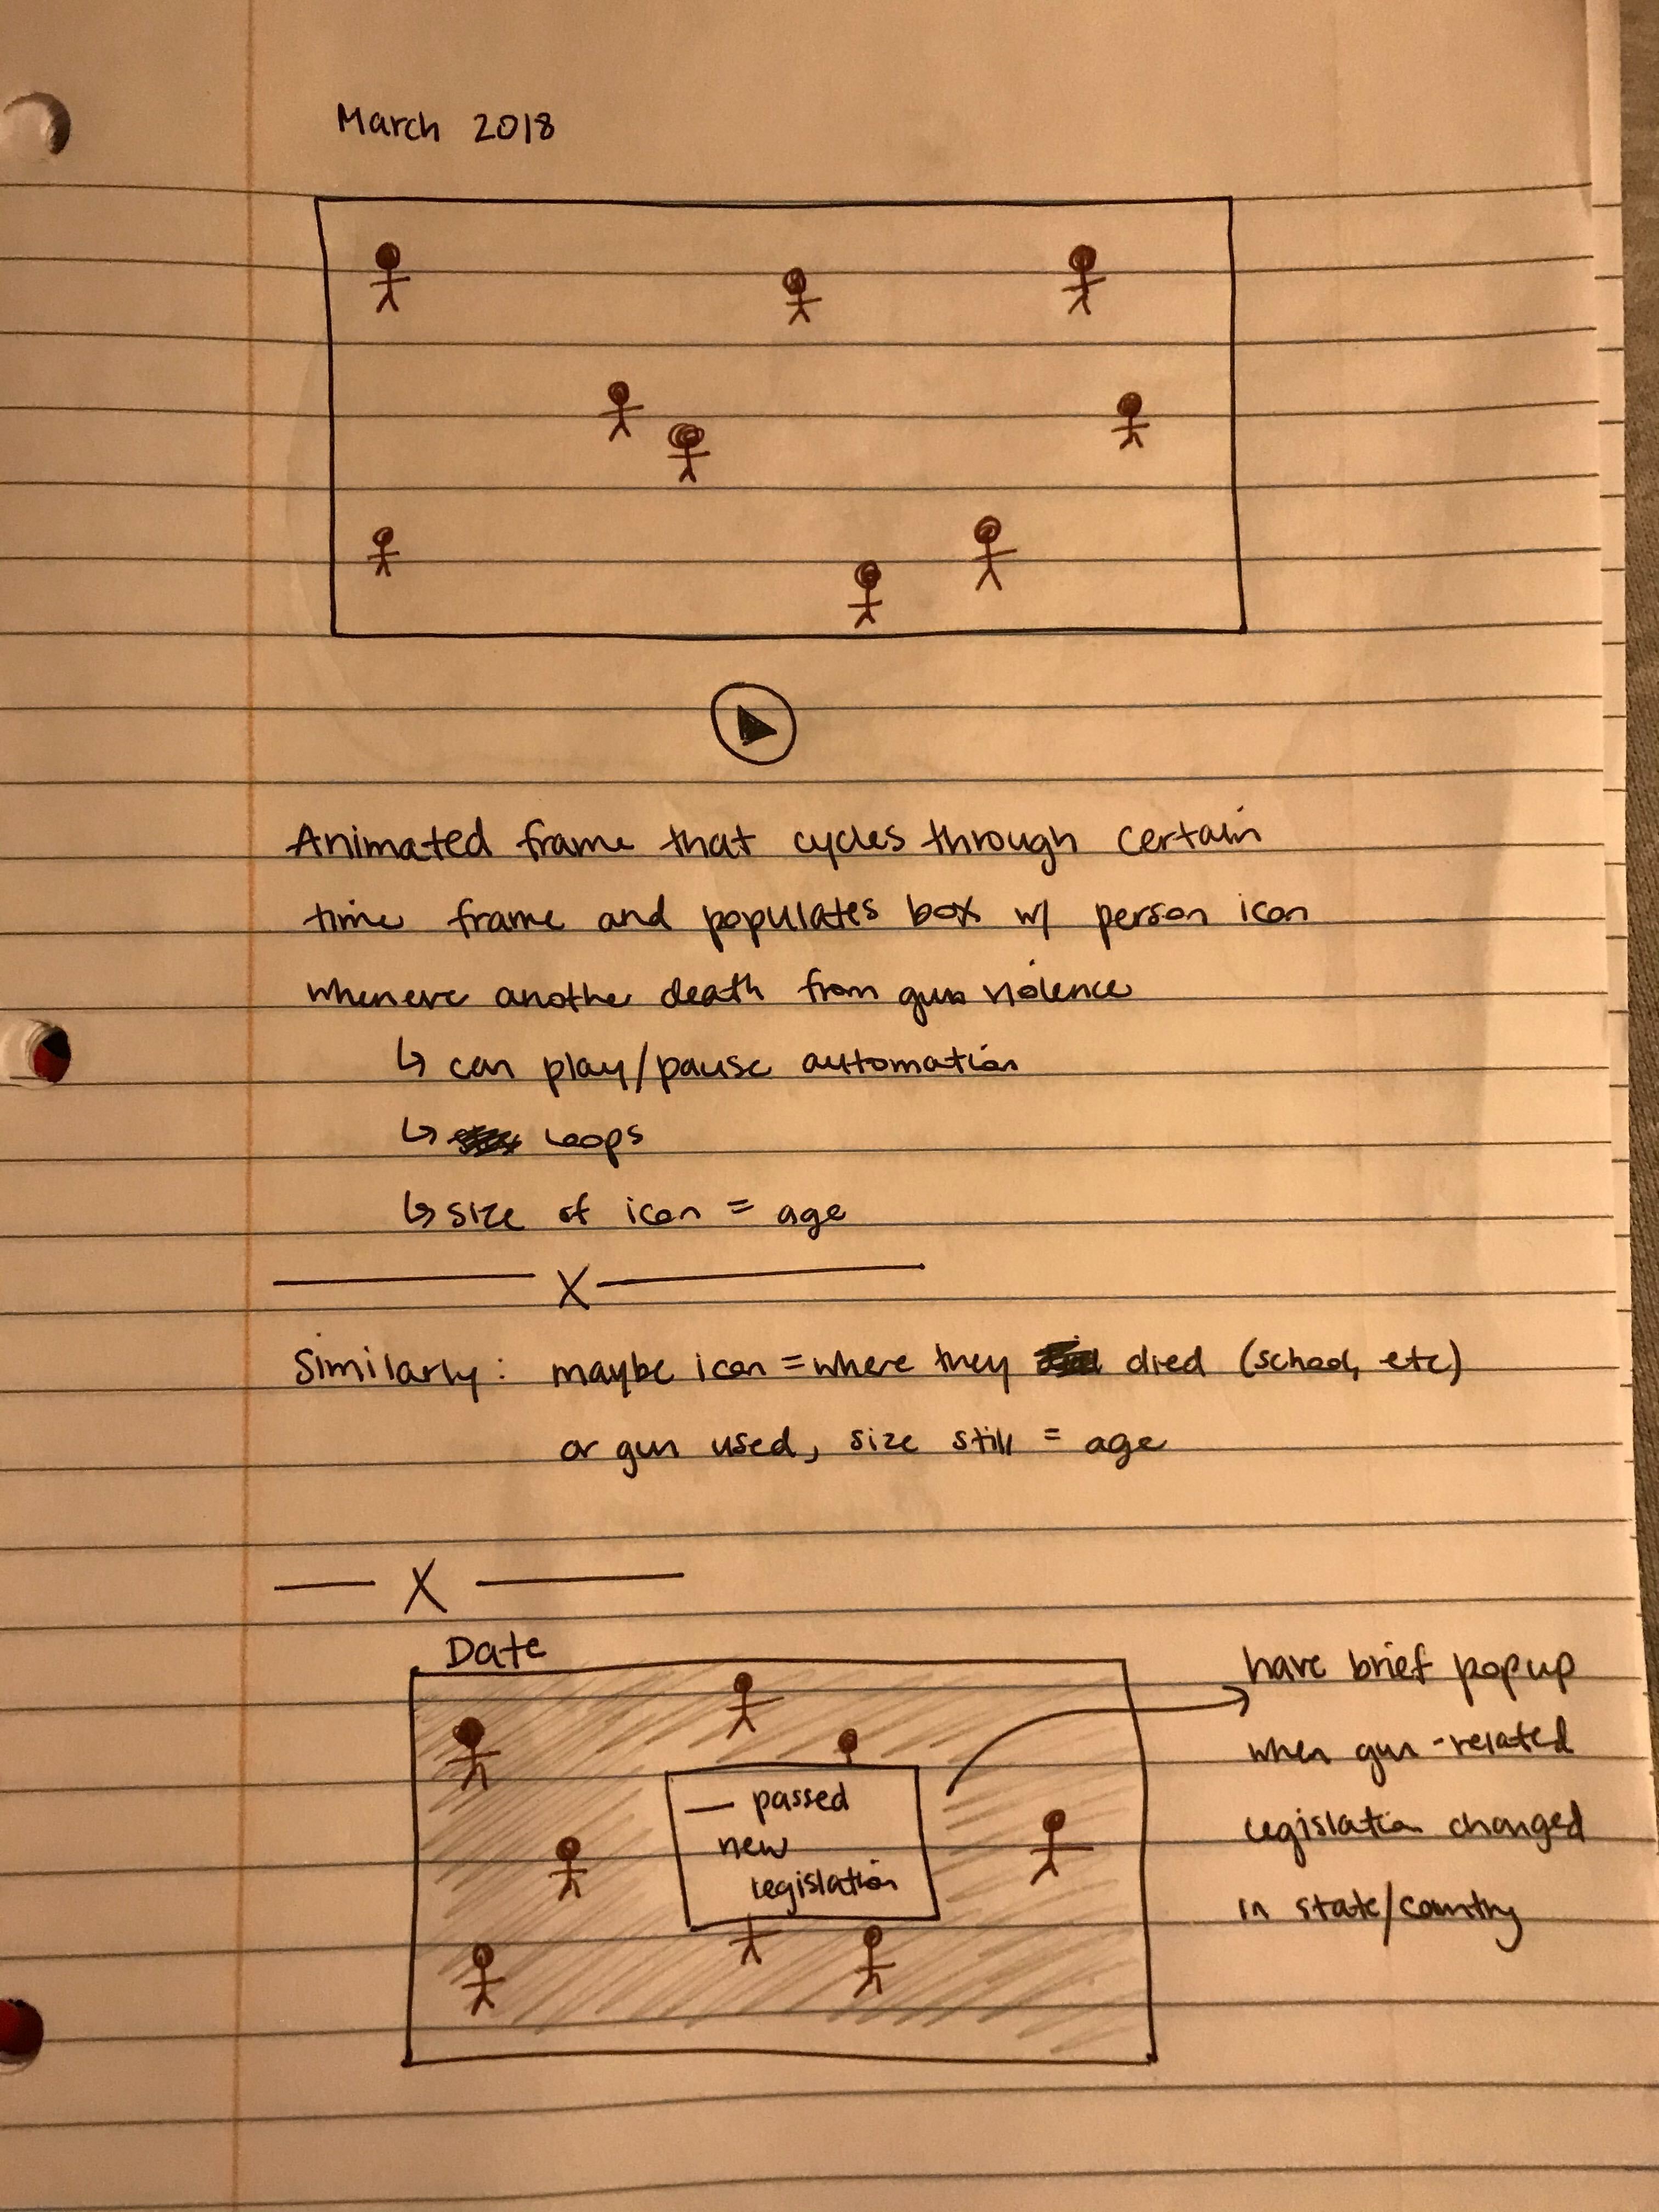 March 2018
Animated frame that cycles through certain
time frame and populates box w/ person icon
whenever another death from gun violence
↳ can play/pause automation
↳ Loops
↳ size of icon = age
X
Similarly: maybe icon = where they died (school, etc)
or gun used, size still = age
X
Date
— passed
new
legislation
have brief popup
when gun-related
legislation changed
in state/country